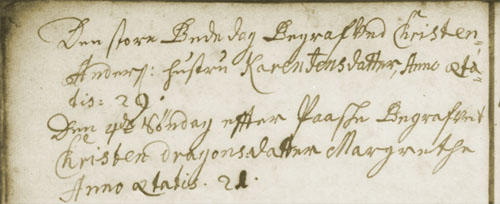 Den store Bededag Begrafved Christen
Anders: hustru Karen Jensdatter, Anno æta=
tis: 29.
Den 4de Søndag effter Paasche Begrafvet
Christen dragons datter Margrethe
Anno ætatis. 21.